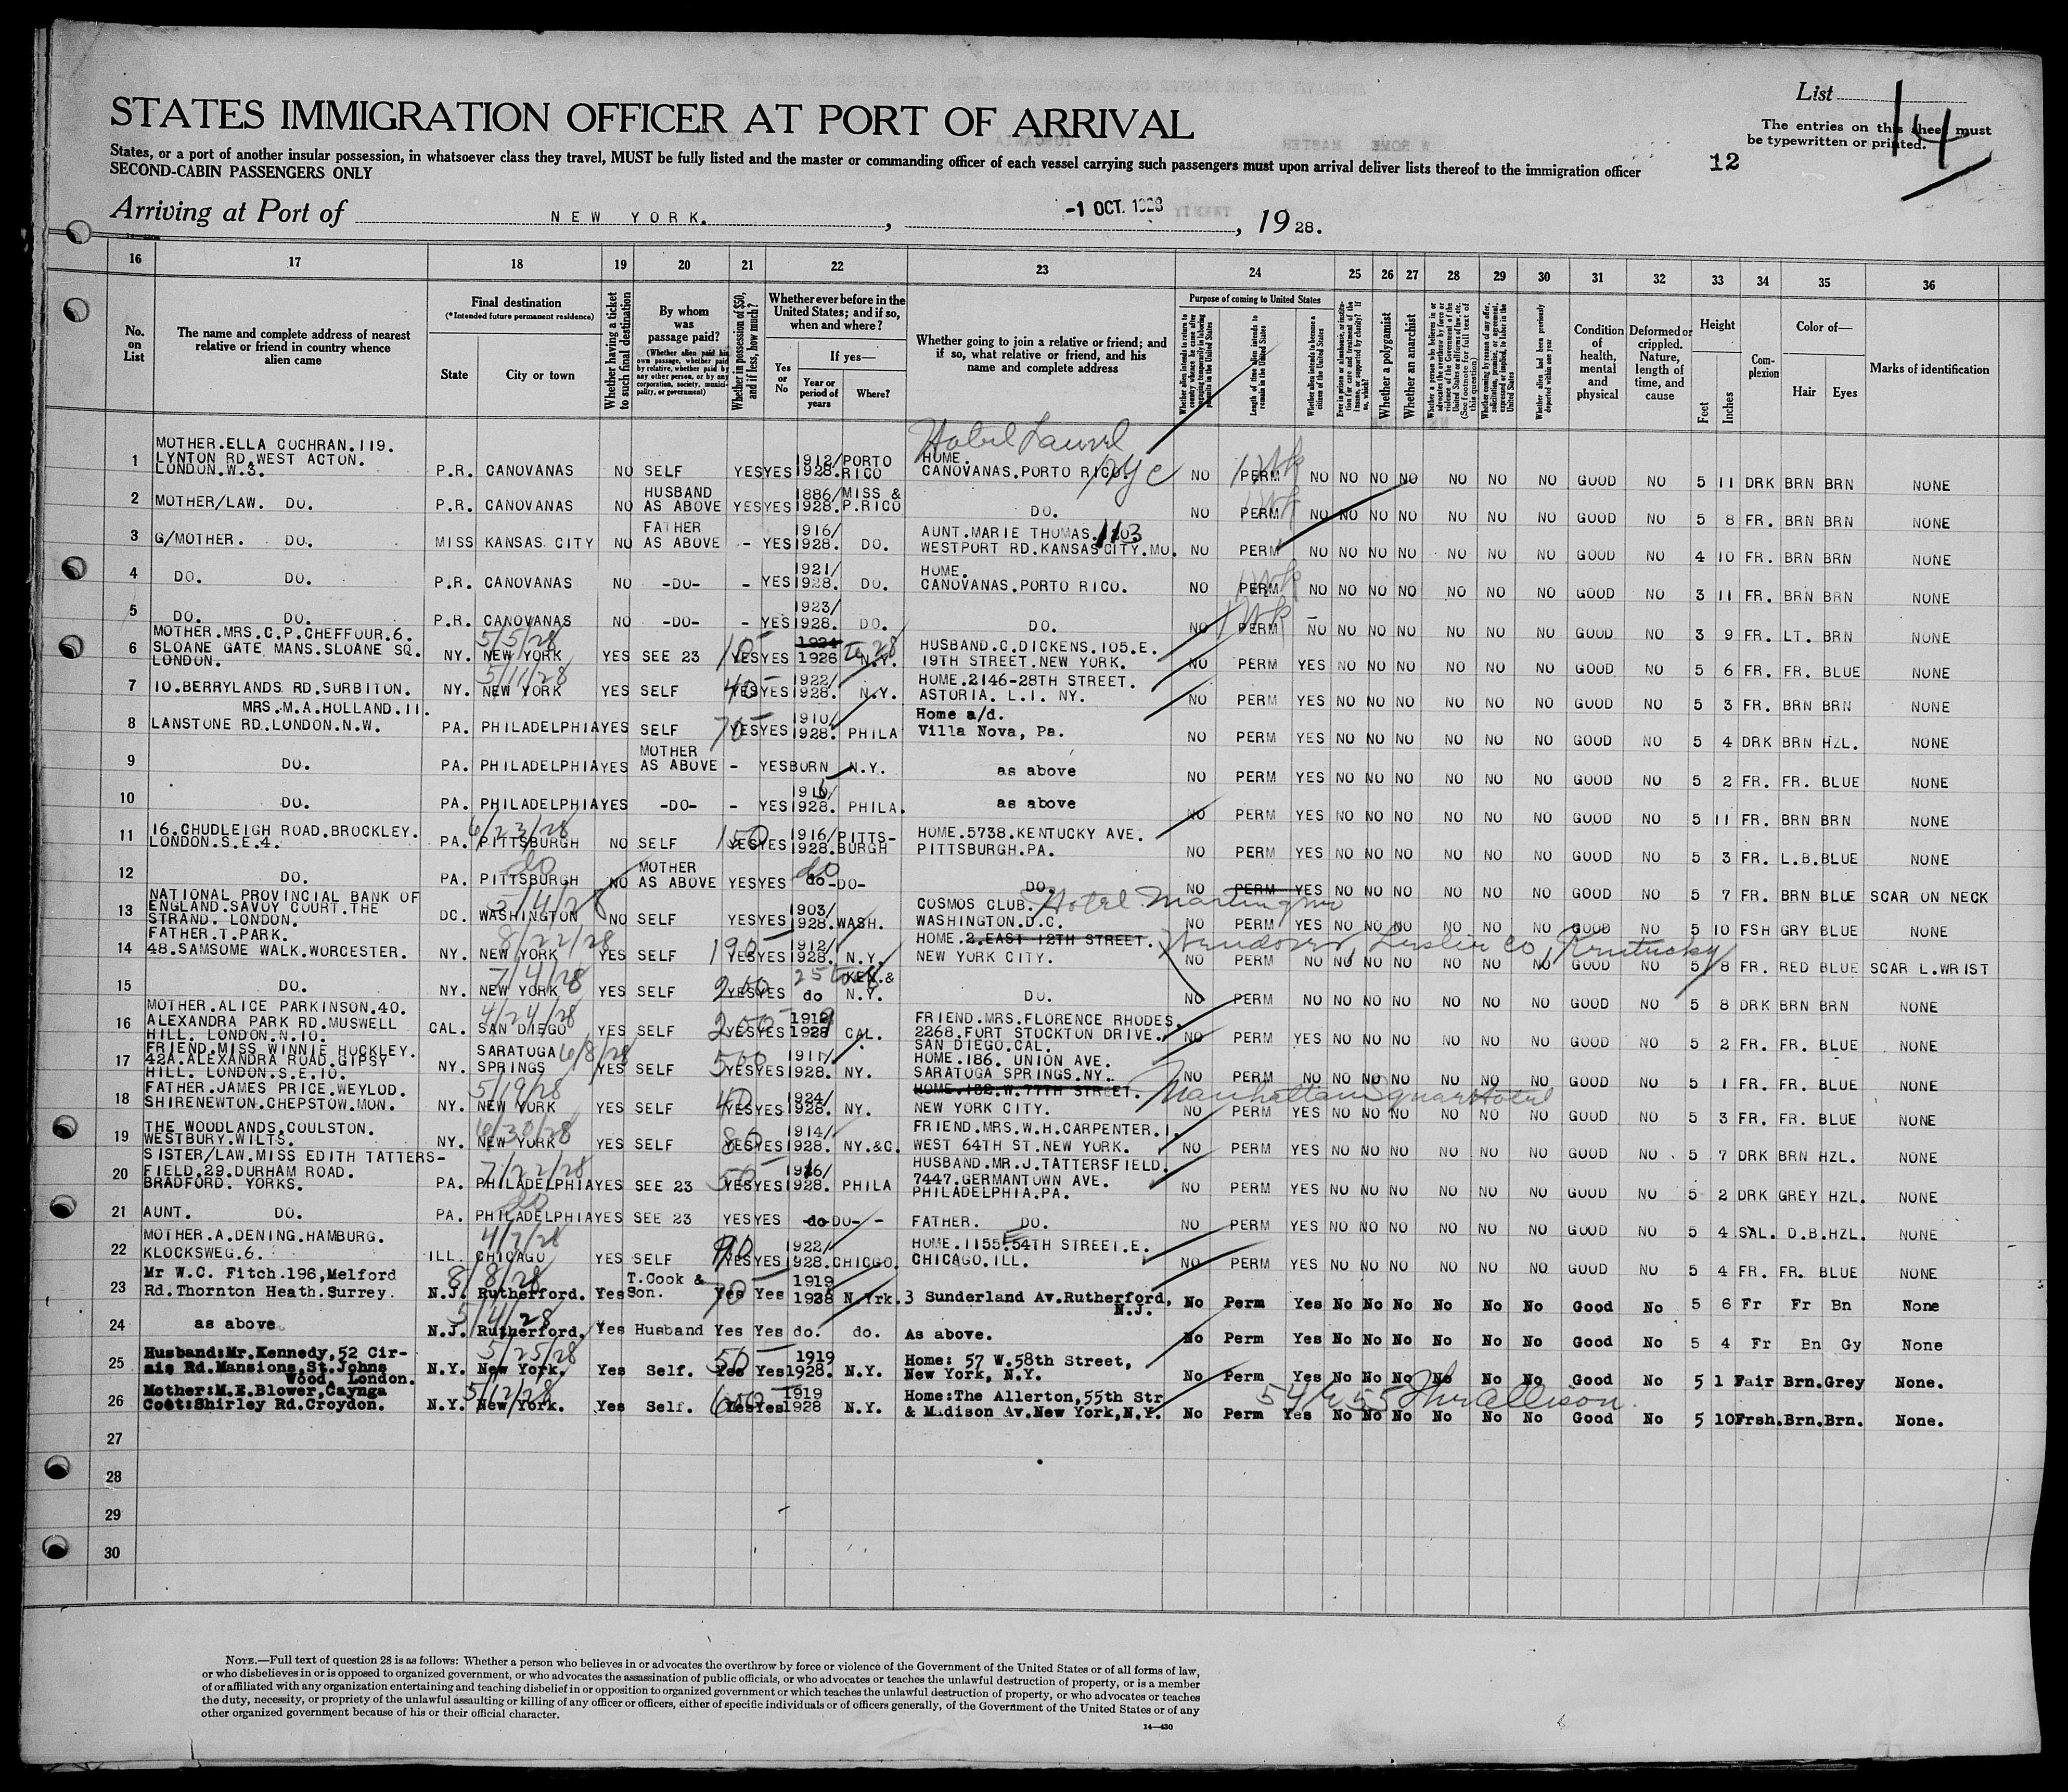 STATES IMMIGRATION OFFICER AT PORT OF ARRIVAL
List 14
The entries on this sheet must
be typewritten or printed.
12
States, or a port of another insular possession, in whatsoever class they travel, MUST be fully listed and the master or commanding officer of each vessel carrying such passengers must upon arrival deliver lists thereof to the immigration officer
SECOND-CABIN PASSENGERS ONLY
Arriving at Port of NEW YORK. , -1 OCT. 1928 , 19 28.
16 17 18 19 20 21 22 23 24 25 26 27 28 29 30 31 32 33 34 35 36
No. on List
The name and complete address of nearest relative or friend in country whence alien came
Final destination
(*Intended future permanent residence)
State
City or town
Whether having a ticket to such final destination
By whom was passage paid?
(Whether alien paid his own passage, whether paid by relative, whether paid by any other person, or by any corporation, society, municipality, or government)
Whether in possession of $50, and if less, how much?
Whether ever before in the United States; and if so, when and where?
Yes or No
If yes—
Year or period of years
Where?
Whether going to join a relative or friend; and if so, what relative or friend, and his name and complete address
Purpose of coming to United States
Length of time alien intends to remain in the United States
Whether alien intends to become a citizen of the United States
Whether a polygamist
Whether an anarchist
Condition of health, mental and physical
Deformed or crippled. Nature, length of time, and cause
Height
Feet
Inches
Complexion
Color of—
Hair
Eyes
Marks of identification
Hotel Laurel
NYC
1 MOTHER.ELLA COCHRAN.119. LYNTON RD.WEST ACTON. LONDON.W.3. P.R. CANOVANAS NO SELF YES YES 1912/1928. PORTO RICO HOME. CANOVANAS.PORTO RICO. NO PERM NO NO NO NO NO NO NO GOOD NO 5 11 DRK BRN BRN NONE
2 MOTHER/LAW. DO. P.R. CANOVANAS NO HUSBAND AS ABOVE YES YES 1886/1928. MISS & P.RICO DO. NO PERM NO NO NO NO NO NO NO GOOD NO 5 8 FR. BRN BRN NONE
3 G/MOTHER. DO. MISS KANSAS CITY NO FATHER AS ABOVE - YES 1916/1928. DO. AUNT.MARIE THOMAS.1103 WESTPORT RD.KANSAS CITY.MO. NO PERM NO NO NO NO NO NO NO GOOD NO 4 10 FR. BRN BRN NONE
4 DO. DO. P.R. CANOVANAS NO -DO- - YES 1921/1928. DO. HOME. CANOVANAS.PORTO RICO. NO PERM NO NO NO NO NO NO NO GOOD NO 3 11 FR. BRN BRN NONE
5 DO. DO. P.R. CANOVANAS NO -DO- - YES 1923/1928. DO. DO. NO PERM NO NO NO NO NO NO NO GOOD NO 3 9 FR. LT. BRN NONE
6 MOTHER.MRS.C.P.CHEFFOUR.6. SLOANE GATE MANS.SLOANE SQ. LONDON. NY. 5/5/28 NEW YORK YES SEE 23 YES YES 1924 1926 to 28 N.Y. HUSBAND.C.DICKENS.105.E. 19TH STREET.NEW YORK. NO PERM YES NO NO NO NO NO NO GOOD NO 5 6 FR. FR. BLUE NONE
7 10.BERRYLANDS RD.SURBITON. NY. 5/11/28 NEW YORK YES SELF 40 YES YES 1922/1928. N.Y. HOME.2146-28TH STREET. ASTORIA. L.I. NY. NO PERM YES NO NO NO NO NO NO GOOD NO 5 3 FR. BRN BRN NONE
8 MRS.M.A.HOLLAND.11. LANSTONE RD.LONDON.N.W. PA. PHILADELPHIA YES SELF 70 YES YES 1910/1928. PHILA Home a/d. Villa Nova, Pa. NO PERM YES NO NO NO NO NO NO GOOD NO 5 4 DRK BRN HZL. NONE
9 DO. PA. PHILADELPHIA YES MOTHER AS ABOVE - YES BORN N.Y. as above NO PERM YES NO NO NO NO NO NO GOOD NO 5 2 FR. FR. BLUE NONE
10 DO. PA. PHILADELPHIA YES -DO- - YES 1910/1928. PHILA. as above NO PERM YES NO NO NO NO NO NO GOOD NO 5 11 FR. BRN BRN NONE
11 16.CHUDLEIGH ROAD.BROCKLEY. LONDON.S.E.4. PA. 6/23/28 PITTSBURGH NO SELF 150 YES YES 1916/1928. PITTS-BURGH HOME.5738.KENTUCKY AVE. PITTSBURGH.PA. NO PERM YES NO NO NO NO NO NO GOOD NO 5 3 FR. L.B. BLUE NONE
12 DO. PA. do PITTSBURGH NO MOTHER AS ABOVE YES YES do do -DO- DO. NO PERM YES NO NO NO NO NO NO GOOD NO 5 7 FR. BRN BLUE SCAR ON NECK
13 NATIONAL PROVINCIAL BANK OF ENGLAND.SAVOY COURT.THE STRAND. LONDON. DC. WASHINGTON NO SELF YES YES 1903/1928. WASH. COSMOS CLUB. WASHINGTON.D.C. Hotel NO PERM YES NO NO NO NO NO NO GOOD NO 5 10 FSH GRY BLUE NONE
14 FATHER.T.PARK. 48.SAMSOME WALK.WORCESTER. NY. 8/22/28 NEW YORK YES SELF 190 YES YES 1912/1928. N.Y. HOME.2.EAST 12TH STREET. NEW YORK CITY. Wendover, Leslie Co, Kentucky NO PERM NO NO NO NO NO NO NO GOOD NO 5 8 FR. RED BLUE SCAR L.WRIST
15 DO. NY. 7/4/28 NEW YORK YES SELF YES YES do KEN.& N.Y. DO. NO PERM NO NO NO NO NO NO NO GOOD NO 5 8 DRK BRN BRN NONE
16 MOTHER.ALICE PARKINSON.40. ALEXANDRA PARK RD.MUSWELL HILL. LONDON.N.10. CAL. 4/24/28 SAN DIEGO YES SELF YES YES 1919 1928 CAL. FRIEND.MRS.FLORENCE RHODES. 2268.FORT STOCKTON DRIVE. SAN DIEGO.CAL. NO PERM YES NO NO NO NO NO NO GOOD NO 5 2 FR. FR. BLUE NONE
17 FRIEND.MISS WINNIE HUCKLEY. 42A.ALEXANDRA ROAD.GIPSY HILL. LONDON.S.E.10. NY. SARATOGA SPRINGS 6/8/28 YES SELF 500 YES YES 1911/1928. NY. HOME.186. UNION AVE. SARATOGA SPRINGS.NY. NO PERM NO NO NO NO NO NO NO GOOD NO 5 1 FR. FR. BLUE NONE
18 FATHER.JAMES PRICE.WEYLOD. SHIRENEWTON.CHEPSTOW.MON. NY. 5/19/28 NEW YORK YES SELF 40 YES YES 1924/1928. NY. HOME.132.W.77TH STREET. NEW YORK CITY. Manhattan Square Hotel NO PERM YES NO NO NO NO NO NO GOOD NO 5 3 FR. FR. BLUE NONE
19 THE WOODLANDS.COULSTON. WESTBURY.WILTS. NY. 6/30/28 NEW YORK YES SELF 80 YES YES 1914/1928. NY.&C. FRIEND.MRS.W.H.CARPENTER.1. WEST 64TH ST.NEW YORK. NO PERM YES NO NO NO NO NO NO GOOD NO 5 7 DRK BRN HZL. NONE
20 SISTER/LAW.MISS EDITH TATTERS-FIELD.29.DURHAM ROAD. BRADFORD. YORKS. PA. 7/22/28 PHILADELPHIA YES SEE 23 50 YES YES 1916/1928. PHILA HUSBAND.MR.J.TATTERSFIELD. 7447.GERMANTOWN AVE. PHILADELPHIA.PA. NO PERM YES NO NO NO NO NO NO GOOD NO 5 2 DRK GREY HZL. NONE
21 AUNT. DO. PA. do PHILADELPHIA YES SEE 23 YES YES do DO- - FATHER. DO. NO PERM YES NO NO NO NO NO NO GOOD NO 5 4 SAL. D.B. HZL. NONE
22 MOTHER.A.DENING.HAMBURG. KLOCKSWEG.6. ILL. 4/7/28 CHICAGO YES SELF YES YES 1922/1928. CHICGO. HOME.1155.54TH STREET.E. CHICAGO.ILL. NO PERM YES NO NO NO NO NO NO GOOD NO 5 4 FR. FR. BLUE NONE
23 Mr W.C. Fitch.196,Melford Rd.Thornton Heath.Surrey. N.J. 8/8/28 Rutherford. Yes T.Cook & Son. 70 Yes Yes 1919 1928 N.Yrk. 3 Sunderland Av.Rutherford, N.J. No Perm Yes No No No No No No Good No 5 6 Fr Fr Bn None
24 as above N.J. 5/4/28 Rutherford. Yes Husband Yes Yes do. do. As above. No Perm Yes No No No No No No Good No 5 4 Fr Bn Gy None
25 Husband:Mr.Kennedy,52 Cir- Rd.Mansions,St.Johns Wood, London. N.Y. 5/25/28 New York. Yes Self. 50 Yes Yes 1919 1928. N.Y. Home: 57 W.58th Street, New York, N.Y. No Perm Yes No No No No No No Good No 5 1 Fair Brn. Grey None.
26 Mother:M.E.Blower,Caynga Cott:Shirley Rd.Croydon. N.Y. 5/12/28 New York. Yes Self. Yes Yes 1919 1928 N.Y. Home:The Allerton,55th Str & Madison Av.New York,N.Y. No Perm Yes No No No No No No Good No 5 10 Frsh. Brn. Brn. None.
27
28
29
30
NOTE.—Full text of question 28 is as follows: Whether a person who believes in or advocates the overthrow by force or violence of the Government of the United States or of all forms of law,
or who disbelieves in or is opposed to organized government, or who advocates the assassination of public officials, or who advocates or teaches the unlawful destruction of property, or is a member
of or affiliated with any organization entertaining and teaching disbelief in or opposition to organized government or which teaches the unlawful destruction of property, or who advocates or teaches
the duty, necessity, or propriety of the unlawful assaulting or killing of any officer or officers, either of specific individuals or of officers generally, of the Government of the United States or of any
other organized government because of his or their official character.
14—430